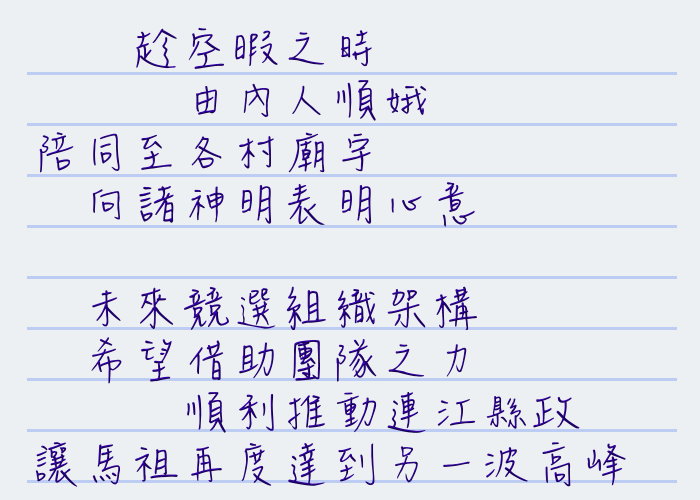 趁空暇之時
由內人順娥
陪同至各村廟宇
向諸神明表明心意
未來競選組織架構
希望借助團隊之力
順利推動連江縣政
讓馬祖再度達到另一波高峰